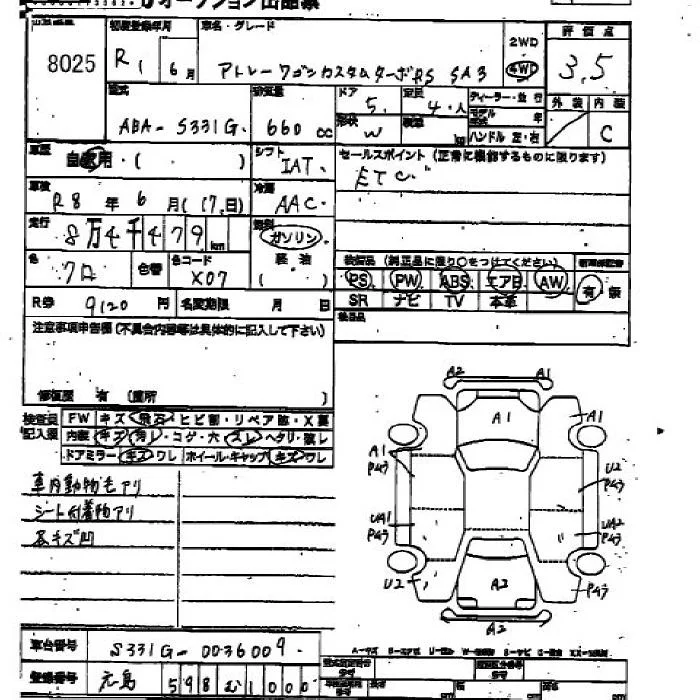 オークション出品票
8025
初度登録年月
R1 6月
車名・グレード
アトレーワゴンカスタムターボRS SA3
2WD
4WD
評価点
3.5
外装 内装
C
型式
ABA-S331G.
排気量
660cc
ドア
5.
定員
4.人
形状
W
積載
kg
ディーラー・並行
モデル年式 年
ハンドル 左・右
車歴
自家用・( )
シフト
IAT.
セールスポイント(正常に機能するものに限ります)
ETC.
車検
R8年6月(17.日)
冷房
AAC.
走行
8万4千479km
燃料
ガソリン
軽油
( )
色
クロ
色替
色コード
X07
装備品(純正品に限り○をつけてください)
PS PW ABS エアB AW
SR ナビ TV 本革
有・無
R券 9120円
名変期限 月 日
検査員記入欄
注意事項申告欄(不具合内容等は具体的に記入して下さい)
修復歴 有(箇所 )
FW キズ・飛石・ヒビ割・リペア跡・X要
内装 キズ・汚レ・コゲ・穴・スレ・ヘタリ・破レ
ドアミラー キズ・ワレ・ホイール・キャップ キズ・ワレ
車内動物毛アリ
シート付着物アリ
各キズ凹
A2 A1
A1
A1
A1
P43
U2
P43
UA1
P43
UA2
P43
U2
A2
P43
A2
車台番号
S331G-0036009.
登録番号
598 む1000